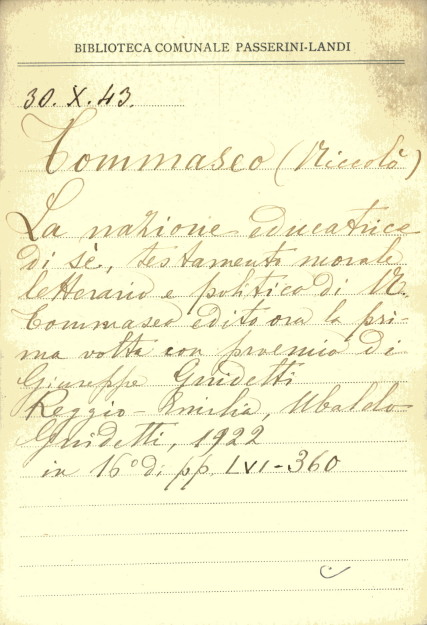 BIBLIOTECA COMUNALE PASSERINI-LANDI
30. X. 43.
Tommaseo (Niccolò)
La nazione educatrice
di sè, testamento morale
letterario e politico di N.
Tommaseo edito ora la pri-
ma volta con proemio di
Giuseppe Guidetti
Reggio-Emilia, Ubaldo
Guidetti, 1922
in 16° di pp. LVI-360